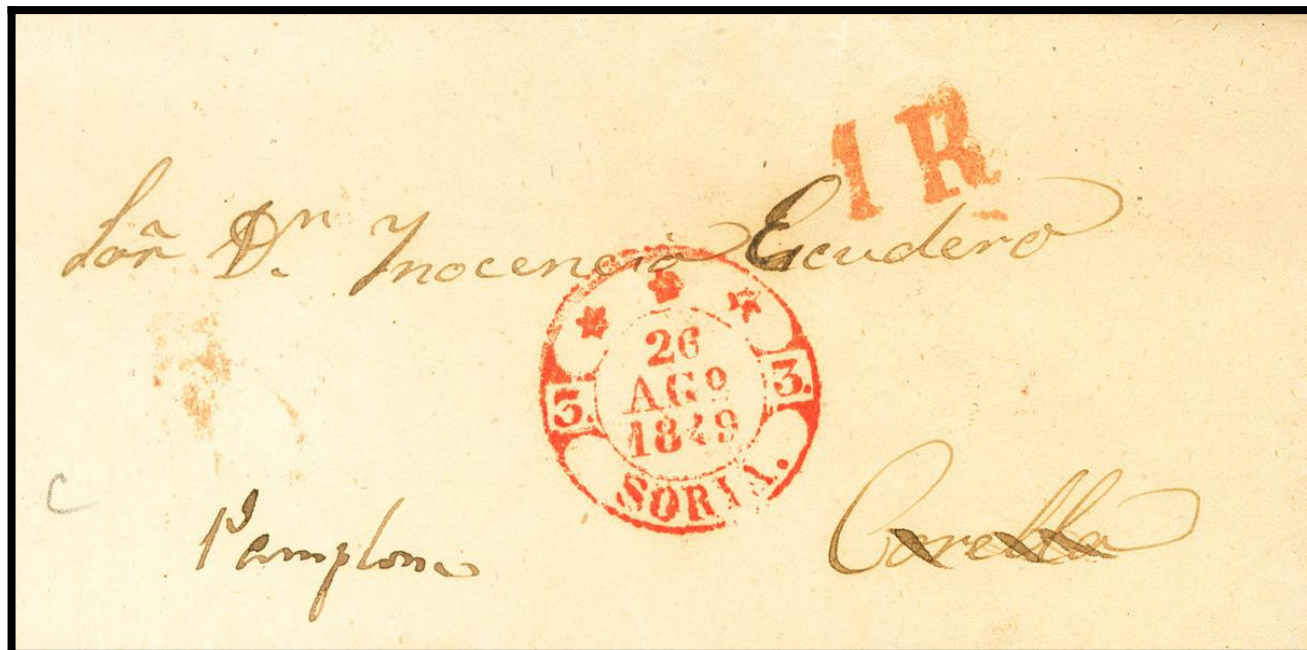 1 R
Sor Dn. Ynocencio Escudero
26
AGO
1849
3. 3.
SORIA.
C
Pamplona
Corella